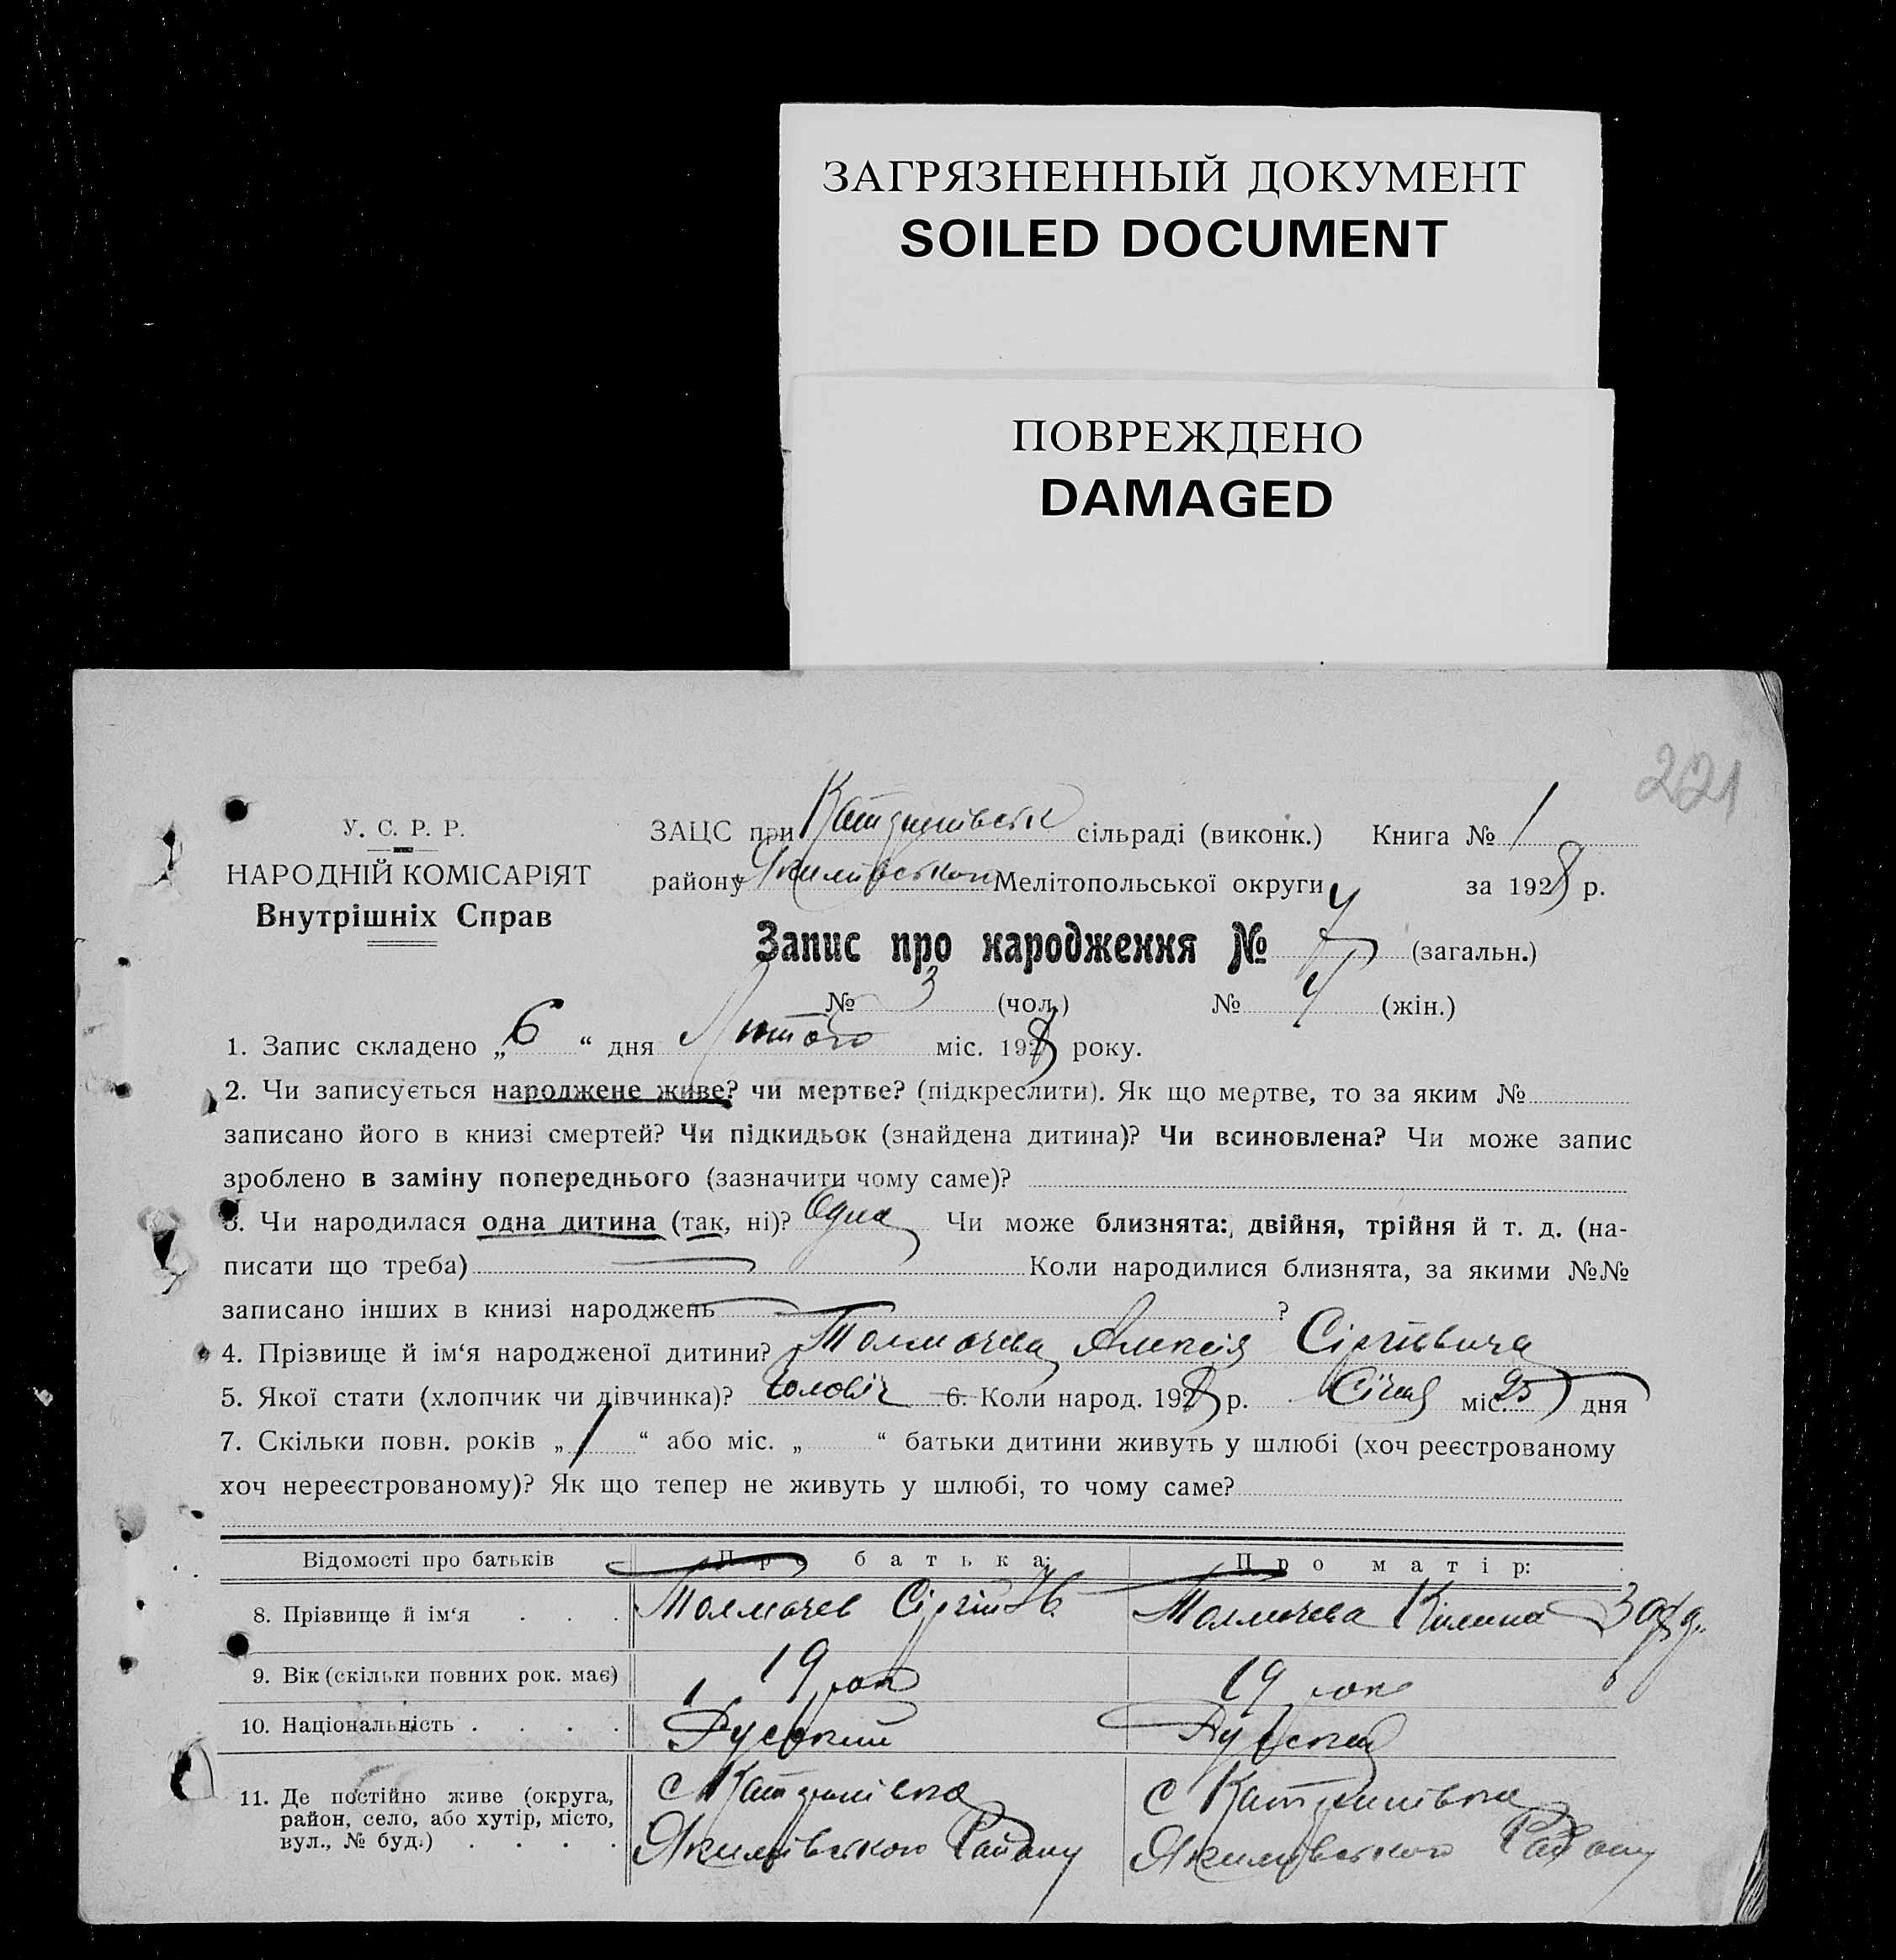 ЗАГРЯЗНЕННЫЙ ДОКУМЕНТ
SOILED DOCUMENT
ПОВРЕЖДЕНО
DAMAGED
221
У. С. Р. Р.
НАРОДНІЙ КОМІСАРІЯТ
Внутрішніх Справ
ЗАЦС при сільраді (виконк.) Книга № 1
району Мелітопольської округи за 1928 р.
Запис про народження № 7 (загальн.)
№ 3 (чол.) № 4 (жін.)
1. Запис складено „6“ дня Лютого міс. 1928 року.
2. Чи записується народжене живе? чи мертве? (підкреслити). Як що мертве, то за яким №
записано його в книзі смертей? Чи підкидьок (знайдена дитина)? Чи всиновлена? Чи може запис
зроблено в заміну попереднього (зазначити чому саме)?
3. Чи народилася одна дитина (так, ні)? Одна Чи може близнята: двійня, трійня й т. д. (на-
писати що треба) Коли народилися близнята, за якими №№
записано інших в книзі народжень ?
4. Прізвище й ім‘я народженої дитини? Толмачева Алексія Сіргієвича
5. Якої стати (хлопчик чи дівчинка)? чоловіч 6. Коли народ. 1928 р. Січня міс. 25 дня
7. Скільки повн. років „1“ або міс. „ “ батьки дитини живуть у шлюбі (хоч реєстрованому
хоч нереєстрованому)? Як що тепер не живуть у шлюбі, то чому саме?
Відомості про батьків Про батька: Про матір:
8. Прізвище й ім‘я . . . Толмачев Сіргій Толмачева
9. Вік (скільки повних рок. має) 19 рок 19 рок
10. Національність . . . . Руський Руський
11. Де постійно живе (округа,
район, село, або хутір, місто,
вул., № буд.) . . . .
с
Якимівського Району
с
Якимівського Району